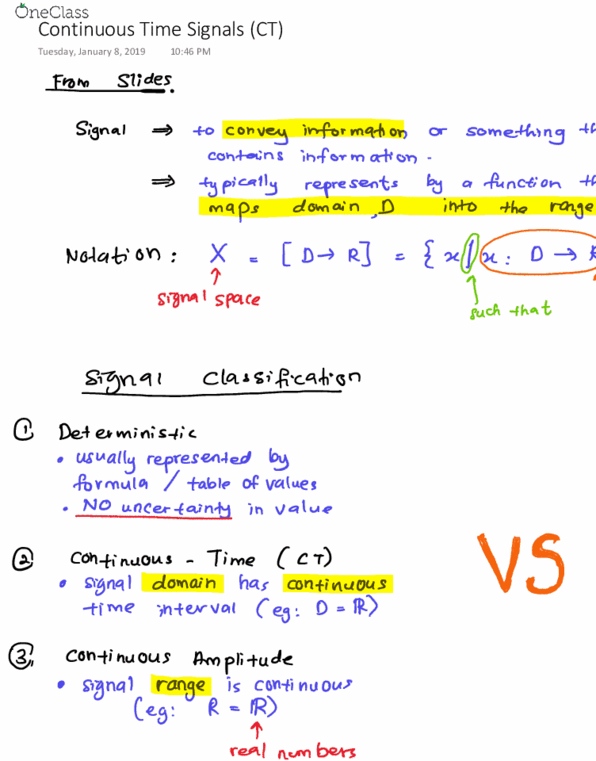 OneClass
Continuous Time Signals (CT)
Tuesday, January 8, 2019 10:46 PM
From Slides.
Signal ⇒ to convey information or something th
contains information.
⇒ typically represents by a function th
maps domain, D into the range
Notation: X = [D → R] = { x | x : D → R
signal space
such that
Signal Classification
① Deterministic
• usually represented by
formula / table of values
• NO uncertainty in value
VS
② Continuous - Time (CT)
• signal domain has continuous
time interval (eg: D = ℝ)
③ Continuous Amplitude
• signal range is continuous
(eg: R = ℝ)
real numbers